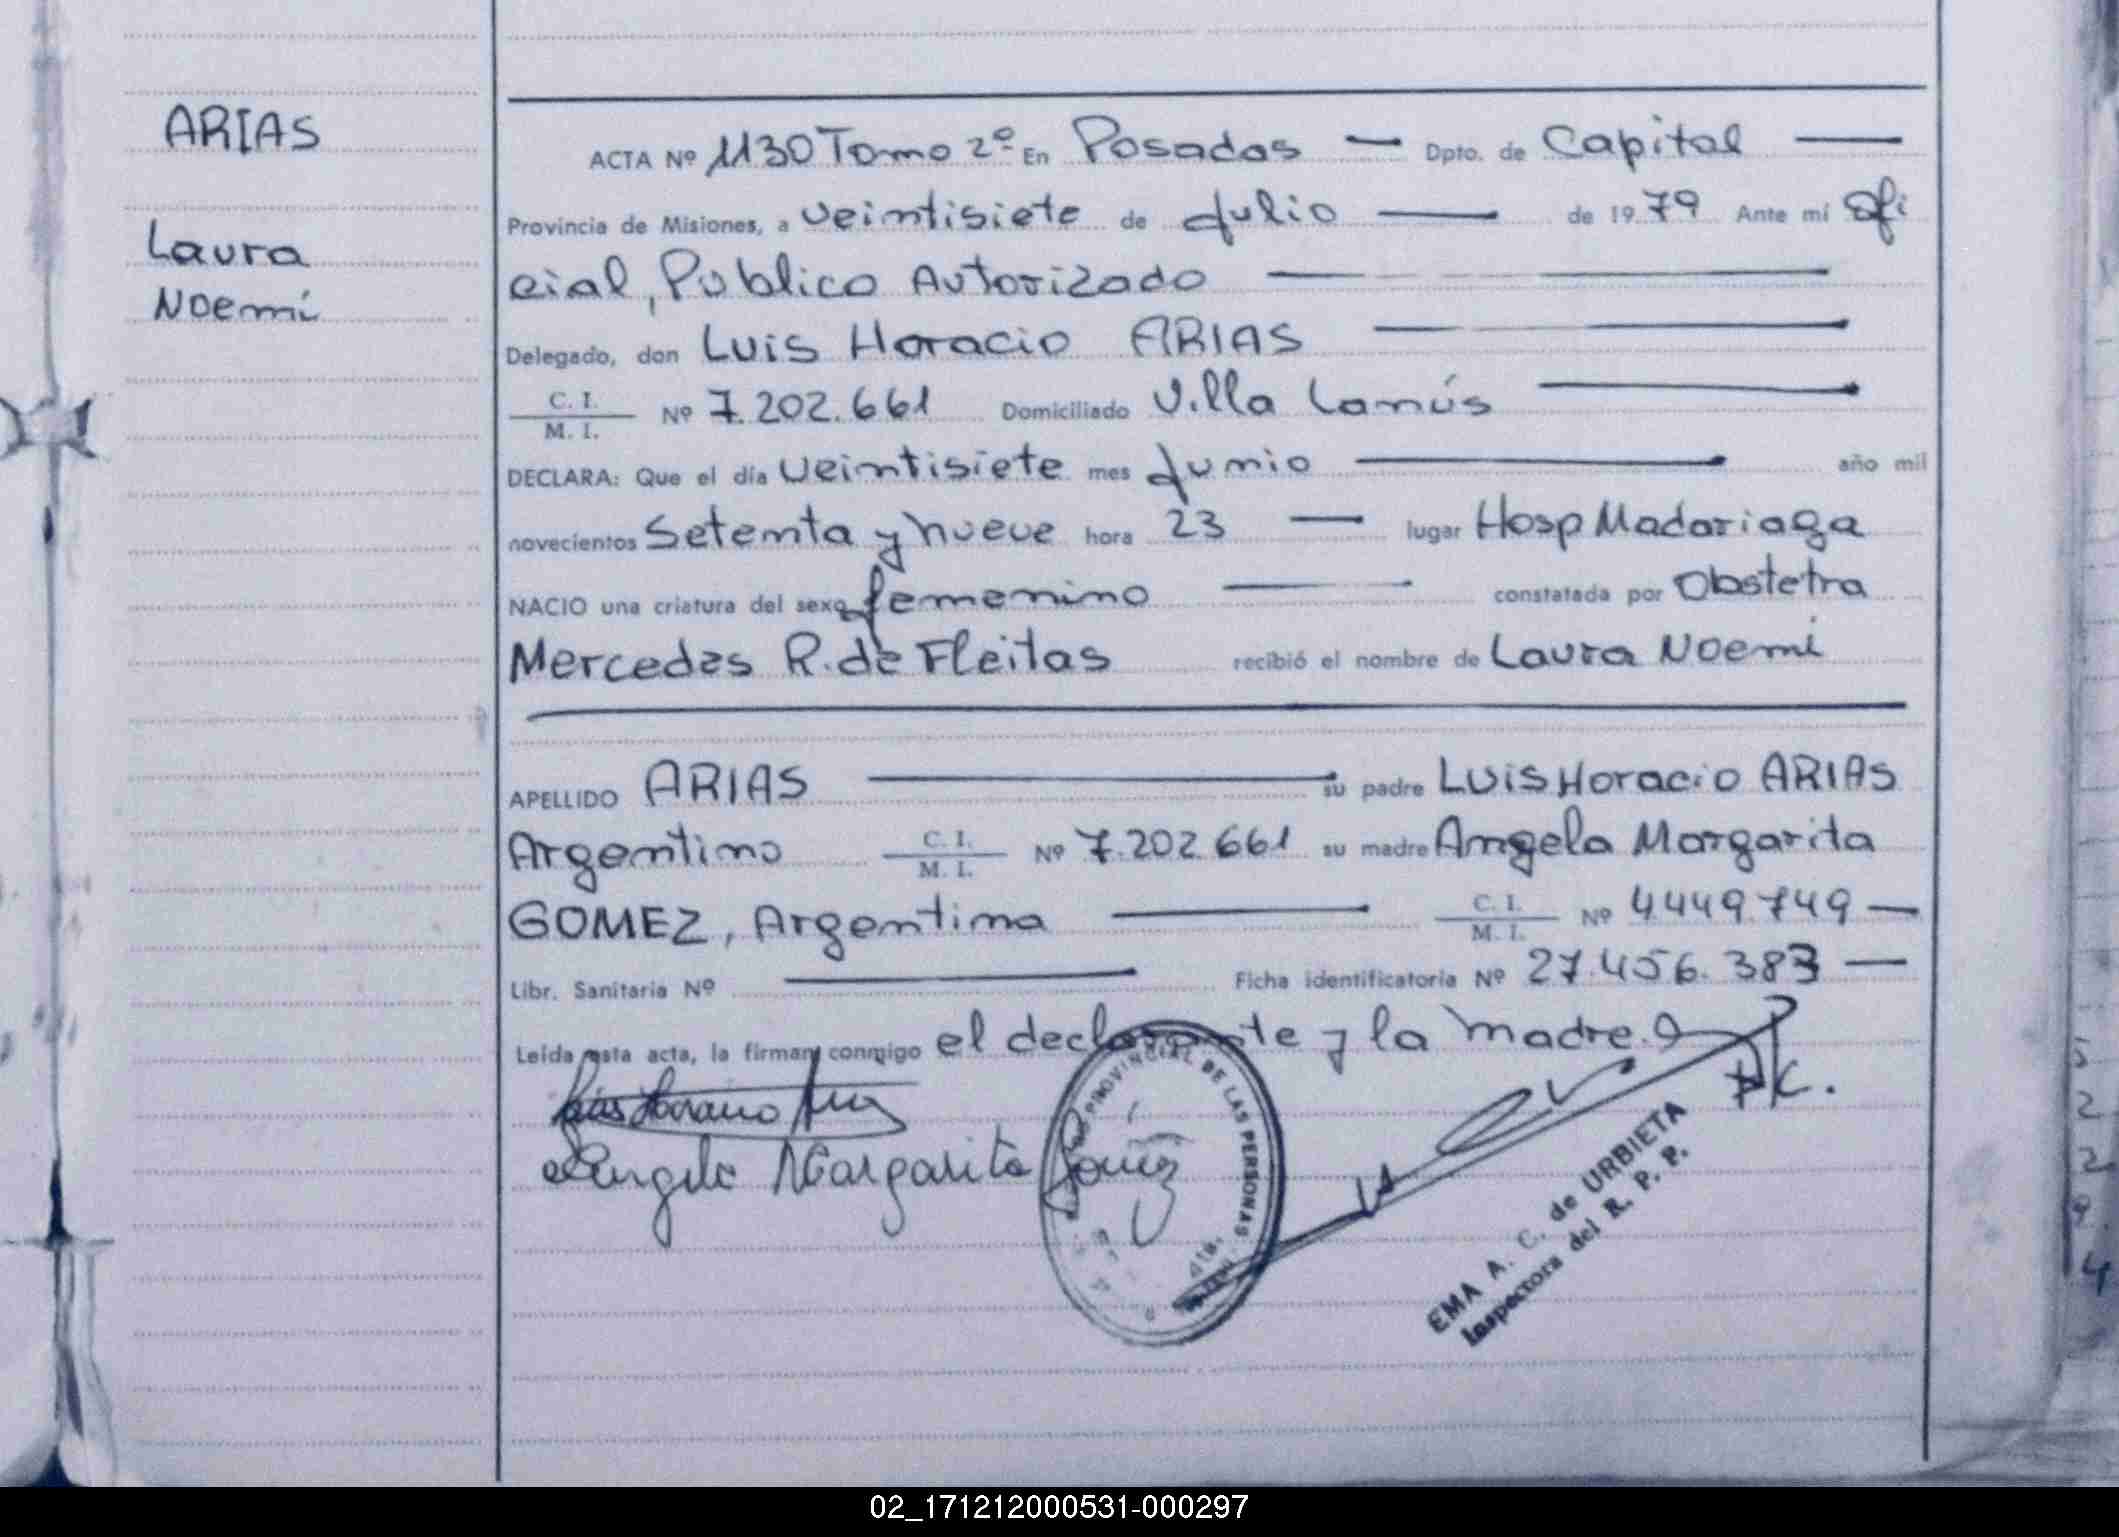 ARIAS
Laura
Noemí
ACTA Nº 1130 Tomo 2º En Posadas — Dpto. de Capital —
Provincia de Misiones, a veintisiete de Julio — de 1979 Ante mí Ofi
cial, Publico Autorizado —
Delegado, don Luis Horacio ARIAS —
C. I.
M. I. Nº 7.202.661 Domiciliado Villa Lanús —
DECLARA: Que el día veintisiete mes Junio — año mil
novecientos Setenta y nueve hora 23 — lugar Hosp Madariaga
NACIO una criatura del sexo femenino — constatada por Obstetra
Mercedes R. de Fleitas recibió el nombre de Laura Noemi
APELLIDO ARIAS — su padre LUIS Horacio ARIAS
Argentino C. I.
M. I. Nº 7.202.661 su madre Angela Margarita
GOMEZ, Argentina — C. I.
M. I. Nº 4449.749 —
Libr. Sanitaria Nº — Ficha identificatoria Nº 27.456.383 —
Leída esta acta, la firman conmigo el declarante y la madre.
Luis Horacio Arias
Angela Margarita Gomez
PROVINCIAL DE LAS PERSONAS
EMA A. C. de URBIETA
Inspectora del R. P. P.
02_171212000531-000297